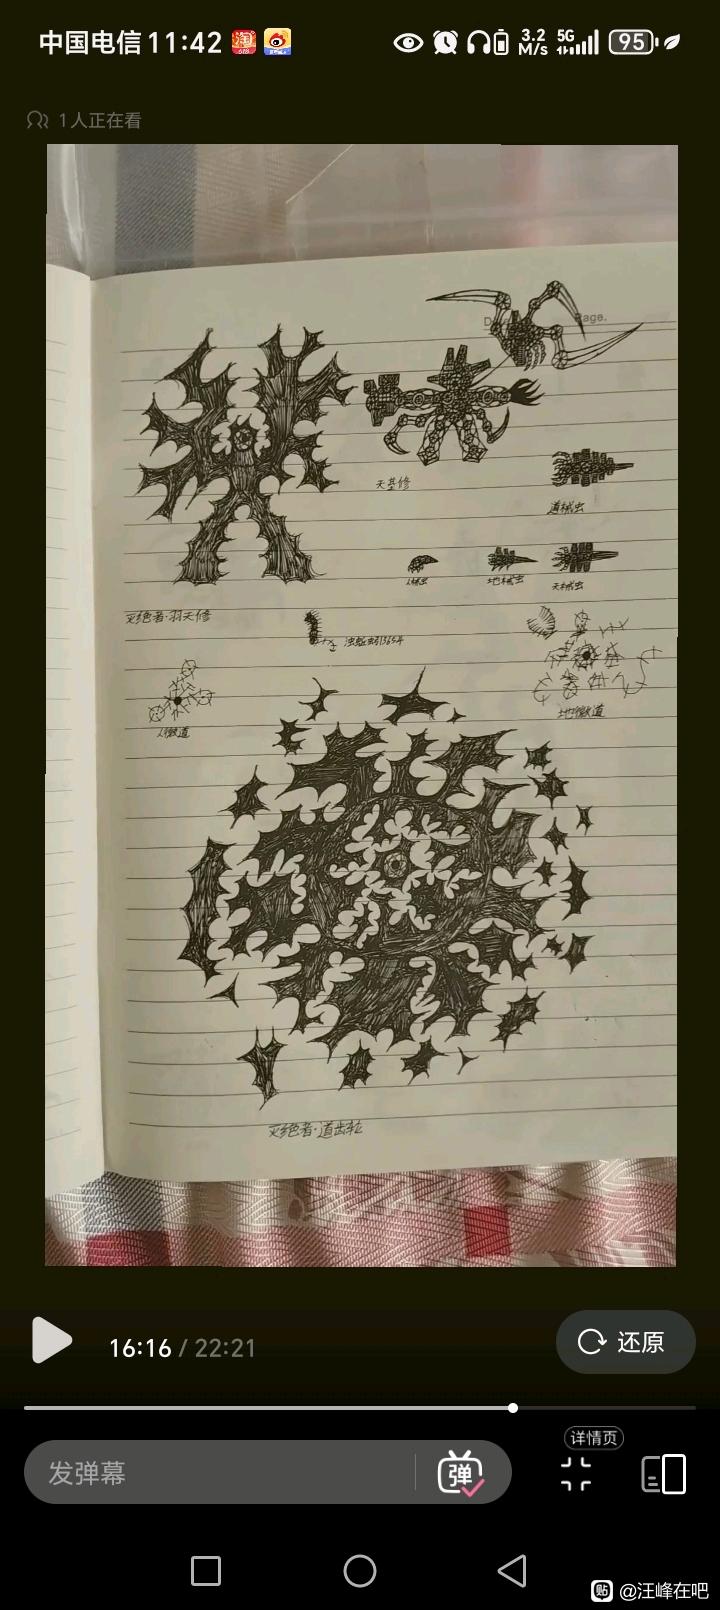 中国电信 11:42
3.2 M/s 5G 95
1人正在看
Page.
天垫修
道械虫
人械虫
地械虫
天械虫
灭绝者·羽天修
人微道
地微道
灭绝者·道齿轮
16:16 / 22:21
还原
详情页
发弹幕
弹
贴 @汪峰在吧